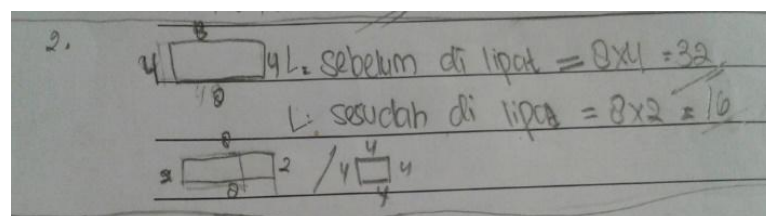 2.
8
4 4 L: sebelum di lipat = 8x4 = 32
8
L: sesudah di lipat = 8x2 = 16
8 4
2 2 / 4 4
8 4